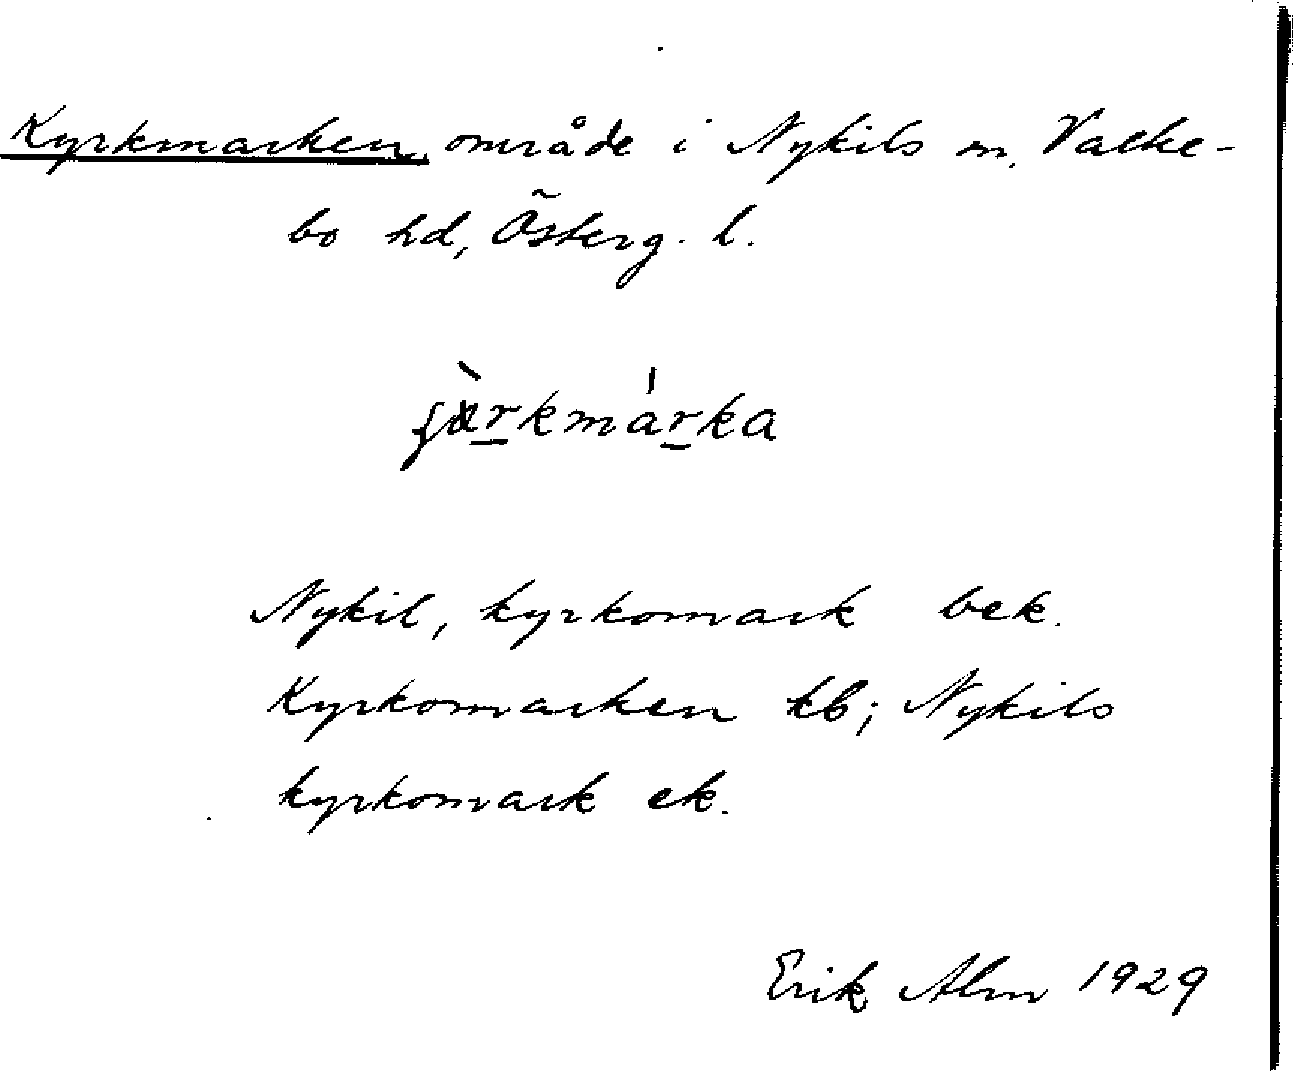 Kyrkmarken, område i Nykils sn, Valke-
bo hd, Österg. l.
Nykil, kyrkomark bek.
Kyrkomarken kb; Nykils
kyrkomark ek.
Erik Alm 1929